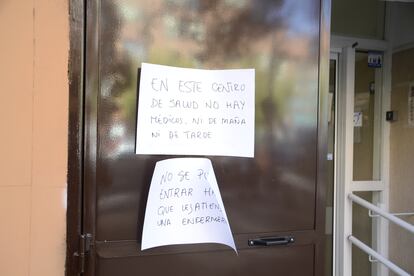 EN ESTE CENTRO
DE SALUD NO HAY
MÉDICOS, NI DE MAÑA
NI DE TARDE
NO SE
ENTRAR
QUE LES ATIEN
UNA ENFERME